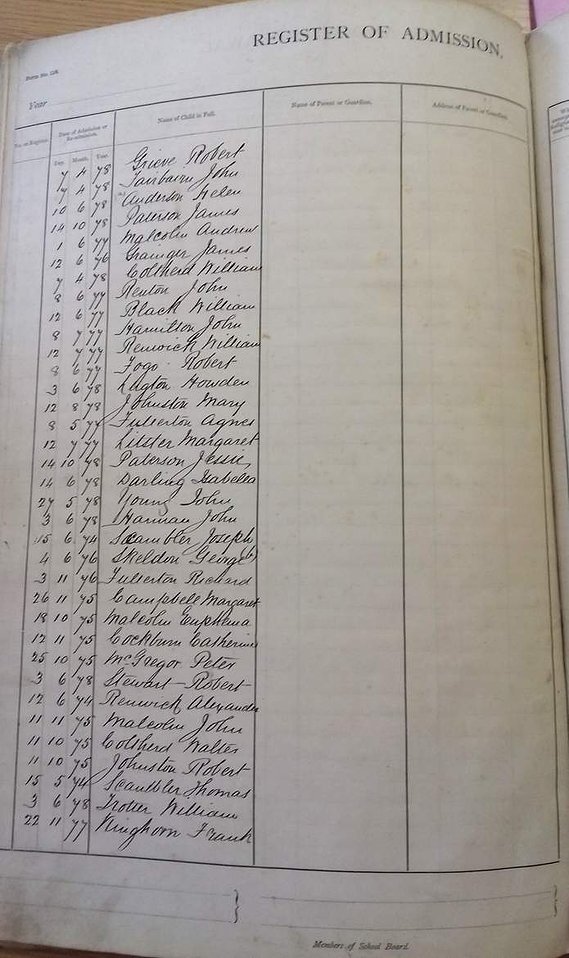 REGISTER OF ADMISSION.
Form No.
Year
No. on Register. Date of Admission or Re-admission. Name of Child in Full. Name of Parent or Guardian. Address of Parent or Guardian.
Day. Month. Year.
7 4 78 Grieve Robert
7 4 78 Fairbairn John
10 6 78 Anderson Helen
14 10 78 Paterson James
1 6 77 Malcolm Andrew
12 6 76 Grainger James
7 4 78 Coltherd William
8 6 77 Renton John
12 6 77 Black William
8 7 77 Hamilton John
12 7 77 Renwick William
8 6 77 Fogo Robert
3 6 78 Lugton Howden
12 8 78 Johnston Mary
8 5 77 Fullerton Agnes
12 7 77 Lister Margaret
14 10 78 Paterson Jessie
14 6 78 Darling Isabella
27 5 78 Young John
3 6 78 Hannan John
15 6 74 Scambler Joseph
4 6 76 Skeldon George
3 11 76 Fullerton Richard
26 11 75 Campbell Margaret
18 10 75 Malcolm Euphemia
12 11 75 Cockburn Catherine
25 10 75 McGregor Peter
3 6 78 Stewart Robert
12 6 74 Renwick Alexander
11 11 75 Malcolm John
11 10 75 Coltherd Walter
11 10 75 Johnston Robert
15 5 74 Scambler Thomas
3 6 78 Trotter William
22 11 77 Kinghorn Frank
Members of School Board.